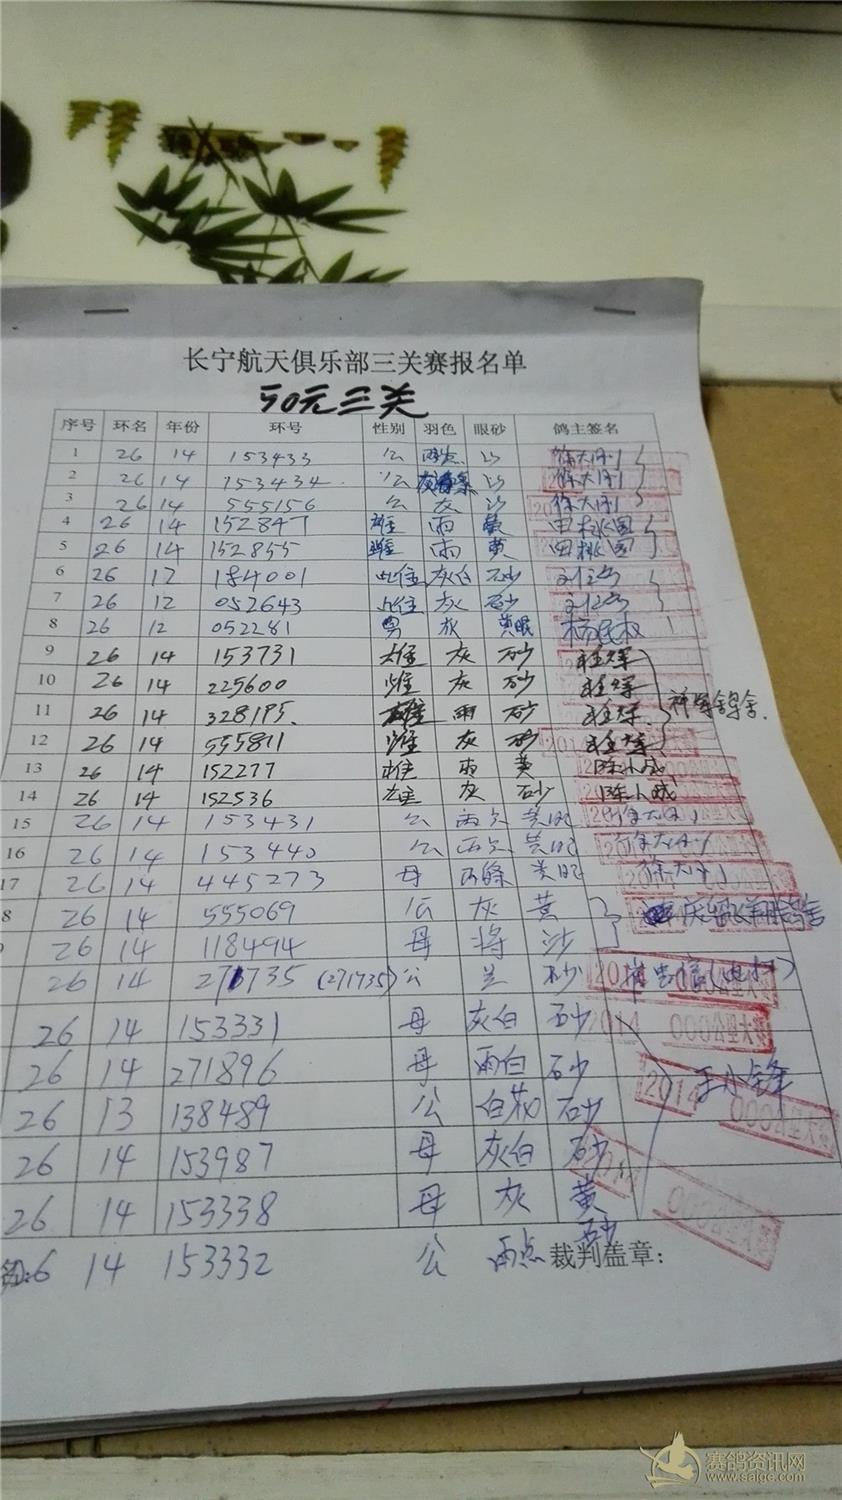 长宁航天俱乐部三关赛报名单
50元三关
序号 环名 年份 环号 性别 羽色 眼砂 鸽主签名
1 26 14 153433 公 雨点 沙
2 26 14 153434 公 沙
3 26 14 555156 公 灰 沙
4 26 14 152847 雄 雨 黄 田桃园
5 26 14 152855 雌 雨 黄 田桃园
6 26 12 184001 雌 灰白 砂
7 26 12 052643 雌 灰 砂
8 26 12 052281 男 灰 黄眼
9 26 14 153731 雄 灰 砂
10 26 14 225600 雌 灰 砂
11 26 14 328195. 雄 雨 砂
12 26 14 555811 雌 灰 砂
13 26 14 152277 雄 雨 黄 陈小成
14 26 14 152536 雄 灰 砂 陈小成
15 26 14 153431 公 雨点 黄眼
16 26 14 153440 公 雨点 黄眼
17 26 14 445273 母 雨條 黄眼
8 26 14 555069 公 灰 黄
26 14 118494 母 绛 沙
26 14 271735 (271735) 公 砂
26 14 153331 母 灰白 砂
26 14 271896 母 雨白 砂
26 13 138489 公 白花 砂 王小锋
26 14 153987 母 灰白 砂
26 14 153338 母 灰 黄
6 14 153332 公 雨点 砂
裁判盖章:
2014 000公里大赛
赛鸽资讯网
www.saige.com